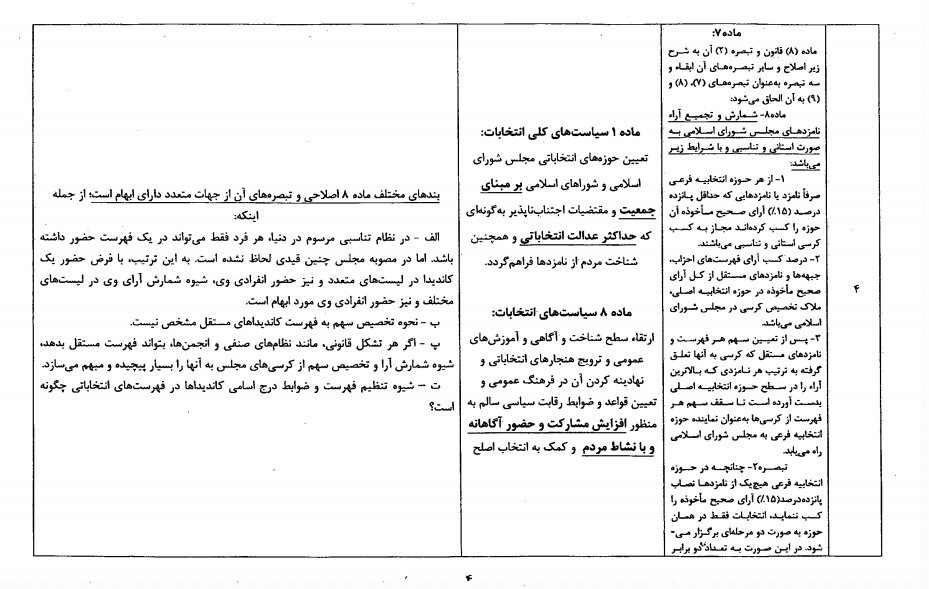 ۴
ماده۷:
ماده (۸) قانون و تبصره (۲) آن به شرح
زیر اصلاح و سایر تبصره‌های آن ابقاء و
سه تبصره به‌عنوان تبصره‌های (۷)، (۸) و
(۹) به آن الحاق می‌شود:
ماده۸- شمارش و تجمیع آراء
نامزدهای مجلس شورای اسلامی به
صورت استانی و تناسبی و با شرایط زیر
می‌باشد:
۱- از هر حوزه انتخابیه فرعی
صرفاً نامزد یا نامزدهایی که حداقل پانزده
درصد (۱۵٪) آرای صحیح مأخوذه آن
حوزه را کسب کرده‌اند مجاز به کسب
کرسی استانی و تناسبی می‌باشند.
۲- درصد کسب آرای فهرست‌های احزاب،
جبهه‌ها و نامزدهای مستقل از کل آرای
صحیح مأخوذه در حوزه انتخابیه اصلی،
ملاک تخصیص کرسی در مجلس شورای
اسلامی می‌باشد.
۳- پس از تعیین سهم هر فهرست و
نامزدهای مستقل که کرسی به آنها تعلق
گرفته به ترتیب هر نامزدی که بالاترین
آراء را در سطح حوزه انتخابیه اصلی
بدست آورده است تا سقف سهم هر
فهرست از کرسی‌ها به‌عنوان نماینده حوزه
انتخابیه فرعی به مجلس شورای اسلامی
راه می‌یابد.
تبصره۲- چنانچه در حوزه
انتخابیه فرعی هیچ‌یک از نامزدها نصاب
پانزده‌درصد(۱۵٪) آرای صحیح مأخوذه را
کسب ننماید، انتخابات فقط در همان
حوزه به صورت دو مرحله‌ای برگزار می-
شود. در این صورت به تعداد دو برابر
ماده ۱ سیاست‌های کلی انتخابات:
تعیین حوزه‌های انتخاباتی مجلس شورای
اسلامی و شوراهای اسلامی بر مبنای
جمعیت و مقتضیات اجتناب‌ناپذیر به‌گونه‌ای
که حداکثر عدالت انتخاباتی و همچنین
شناخت مردم از نامزدها فراهم‌گردد.
ماده ۸ سیاست‌های انتخابات:
ارتقاء سطح شناخت و آگاهی و آموزش‌های
عمومی و ترویج هنجارهای انتخاباتی و
نهادینه کردن آن در فرهنگ عمومی و
تعیین قواعد و ضوابط رقابت سیاسی سالم به
منظور افزایش مشارکت و حضور آگاهانه
و با نشاط مردم و کمک به انتخاب اصلح
بندهای مختلف ماده ۸ اصلاحی و تبصره‌های آن از جهات متعدد دارای ابهام است؛ از جمله
اینکه:
الف - در نظام تناسبی مرسوم در دنیا، هر فرد فقط می‌تواند در یک فهرست حضور داشته
باشد. اما در مصوبه مجلس چنین قیدی لحاظ نشده است. به این ترتیب، با فرض حضور یک
کاندیدا در لیست‌های متعدد و نیز حضور انفرادی وی، شیوه شمارش آرای وی در لیست‌های
مختلف و نیز حضور انفرادی وی مورد ابهام است.
ب - نحوه تخصیص سهم به فهرست کاندیداهای مستقل مشخص نیست.
پ - اگر هر تشکل قانونی، مانند نظام‌های صنفی و انجمن‌ها، بتواند فهرست مستقل بدهد،
شیوه شمارش آرا و تخصیص سهم از کرسی‌های مجلس به آنها را بسیار پیچیده و مبهم می‌سازد.
ت – شیوه تنظیم فهرست و ضوابط درج اسامی کاندیداها در فهرست‌های انتخاباتی چگونه
است؟
۴